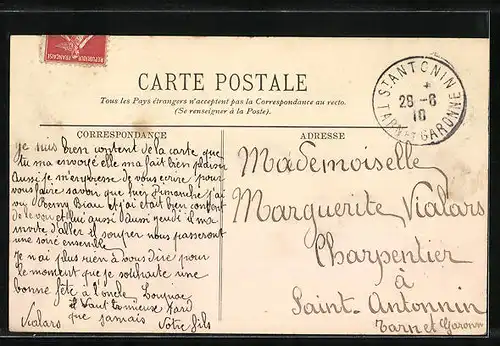 REPUBLIQUE FRANÇAISE
CARTE POSTALE
Tous les Pays étrangers n'acceptent pas la Correspondance au recto.
(Se renseigner à la Poste).
ST ANTONIN
28 -6
10
TARN ET GARONNE
CORRESPONDANCE
je suis bien content de la carte que
tu ma envoyé elle ma fait bien plaisir
Aussi je m'empresse de vous ecrire pour
vous faire savoir que hier Dimanche j'ai
vu Remy Biau et j'ai était bien content
de le voir et lui aussi aussi jeudi il ma
invité d'aller il souper nous passeront
une soire ensemble
Je n'ai plus rien à vous dire pour
le moment que je souhaite une
bonne fête à l'oncle
il vaut le mieux tard
que jamais
Vialars Votre fils
ADRESSE
Mademoiselle
Marguerite Vialars
Charpentier
à
Saint-Antonnin
Tarn et Garonn